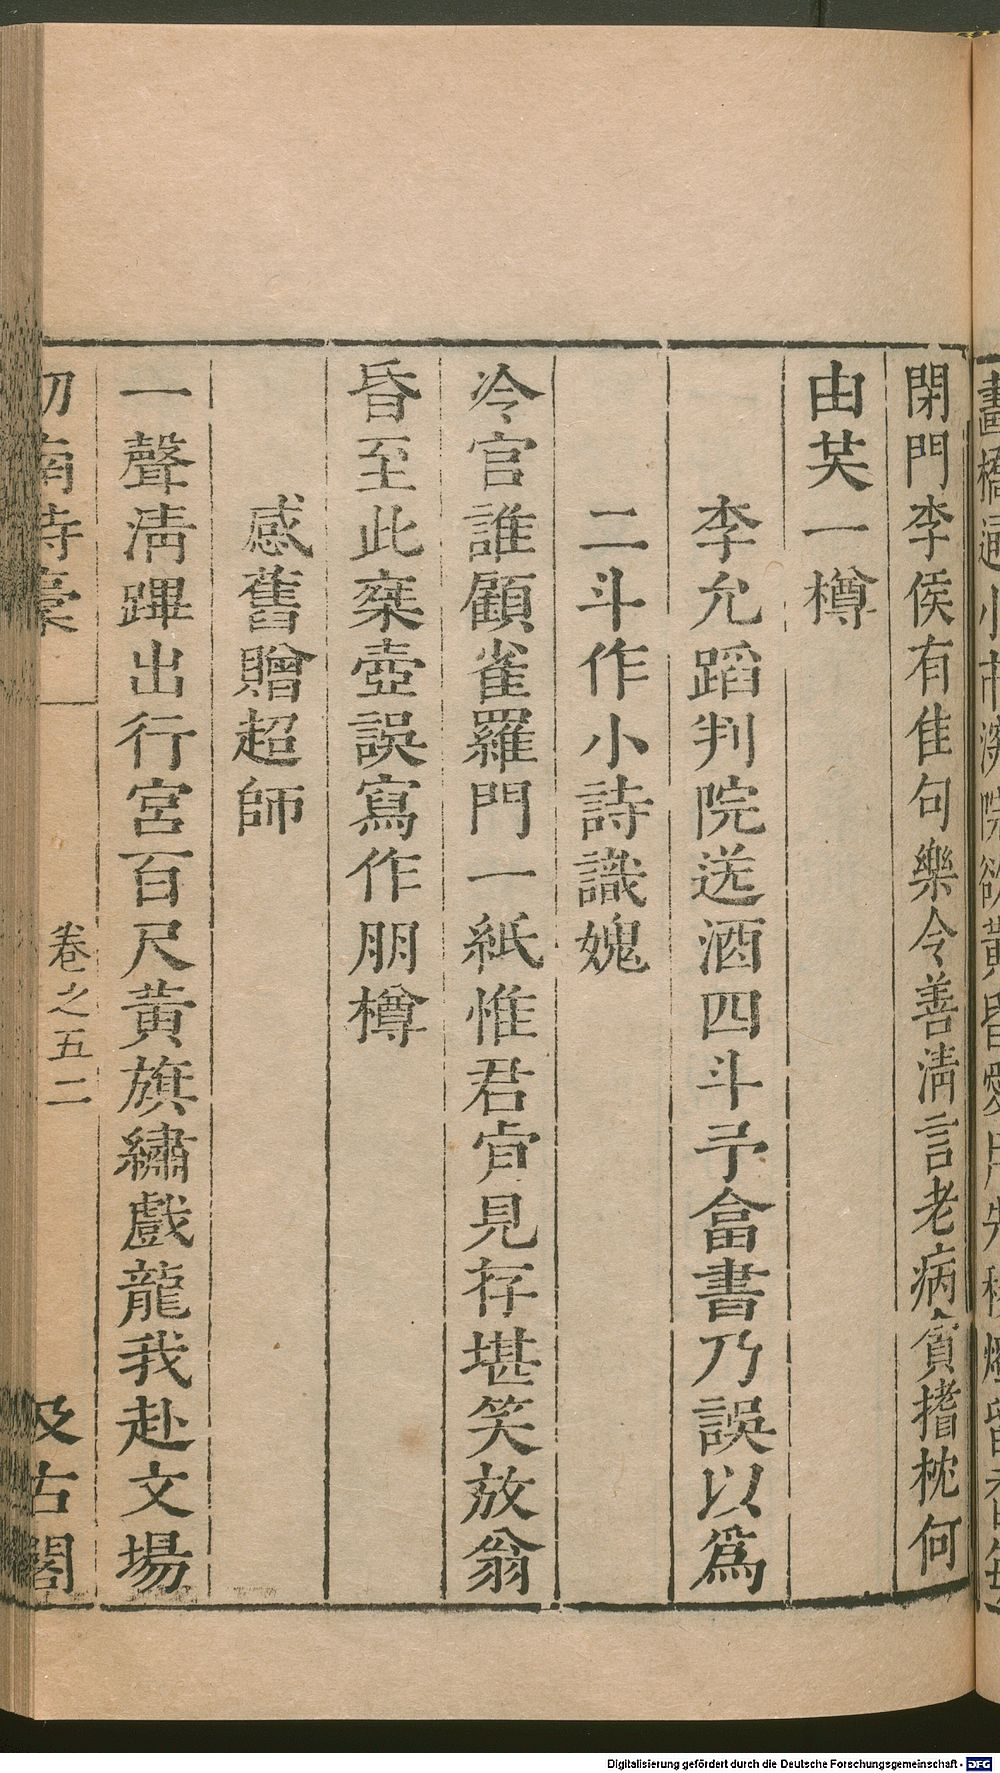 閑門李侯有佳句樂令善清言老病貧揩枕何
由芖一樽
李允蹈判院送酒四斗予畣書乃誤以爲
二斗作小詩識媿
冷官誰顧雀羅門一紙惟君肯見存堪笑放翁
昏至此棄壺誤寫作朋樽
感舊贈超師
一聲淸蹕出行宮百尺黃旗繡戲龍我赴文場
劒南詩稾 卷之五二 汲古閣
Digitalisierung gefördert durch die Deutsche Forschungsgemeinschaft - DFG